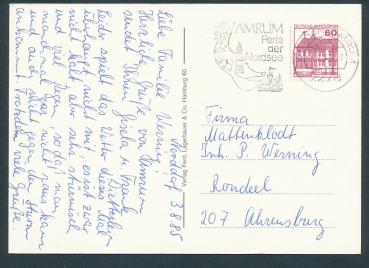 Norddorf 3.8.85
Liebe Familie Werning!
Herzliche Grüße von Amrum
sendet Ihnen Gisela u. Frank
Leider spielt das Wetter dieses Mal
überhaupt nicht mit, es ist zwar
nicht kalt aber sehr stürmisch
und viel Regen, sodaß man
manchmal gar nicht raus kann
und auch nicht gegen den Sturm
ankommt. Trotzdem viele Grüße
Verlag Ferd. Lagerbauer & Co. Hamburg 60
AMRUM
Perle
der
Nordsee
DEUTSCHE BUNDESPOST
60
Firma
Mattenklodt
Inh. P. Werning
Rondeel
207 Ahrensburg